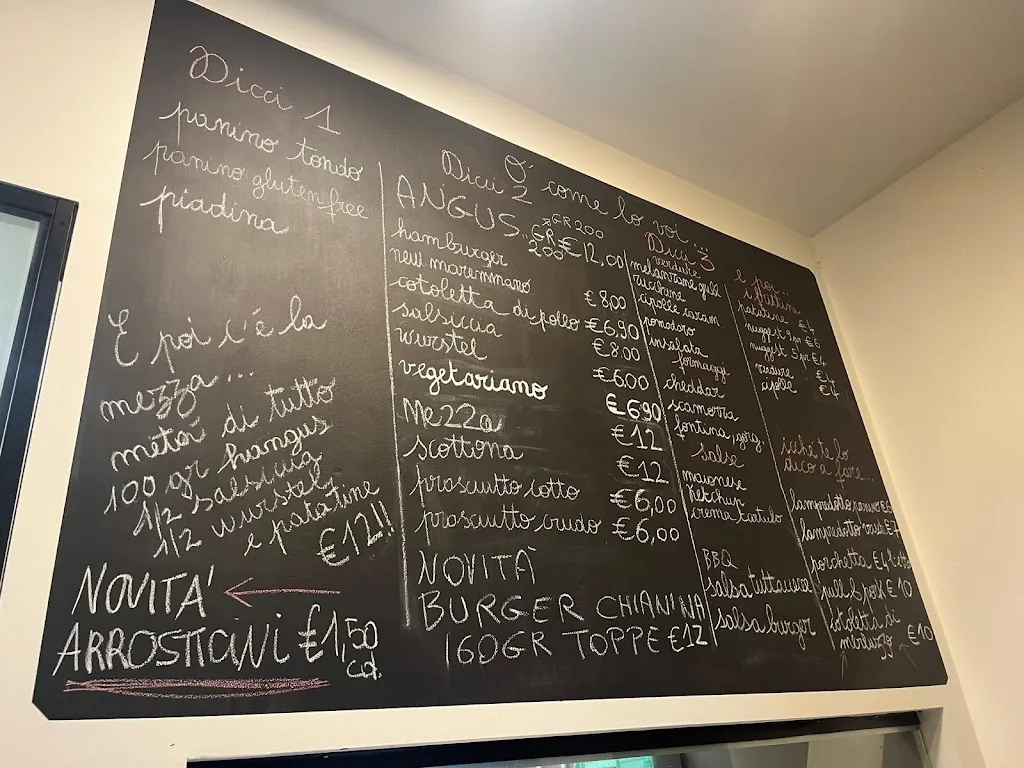 Dicci 1
panino tondo
panino gluten free
piadina
E poi c'è la
mezza...
metà di tutto
100 gr hangus
1/2 salsiccia
1/2 wurstel
e patatine
€12!!
NOVITA'
ARROSTICINI €1,50
cad.
O' come lo voi...
Dicci 2
ANGUS.. GR 200
GR 200 €12,00
hamburger
new maremmano €8,00
cotoletta di pollo €6,90
salsiccia €8,00
wurstel €6,00
vegetariano €6,90
Mezza €12
scottona €12
prosciutto cotto €6,00
prosciutto crudo €6,00
NOVITÀ
BURGER CHIANINA
160GR TOPPE €12
Dicci 3
verdure
melanzane grill
zucchine
cipolle caram
pomodoro
insalata
formaggi
cheddar
scamorza
fontina, gorg.
salse
maionese
ketchup
crema tartufo
BBQ
salsa tuttavera
salsa burger
e poi
i frittini
patatine €4
nuggest 9 pz €6
nuggest 5 pz €4
verdure... €4
cipolle... €4
siche te lo
dico a fare...
lampredotto panino €6
lampredotto €7
porchetta €
pull & pork €10
cotoletta di
merluzzo €10